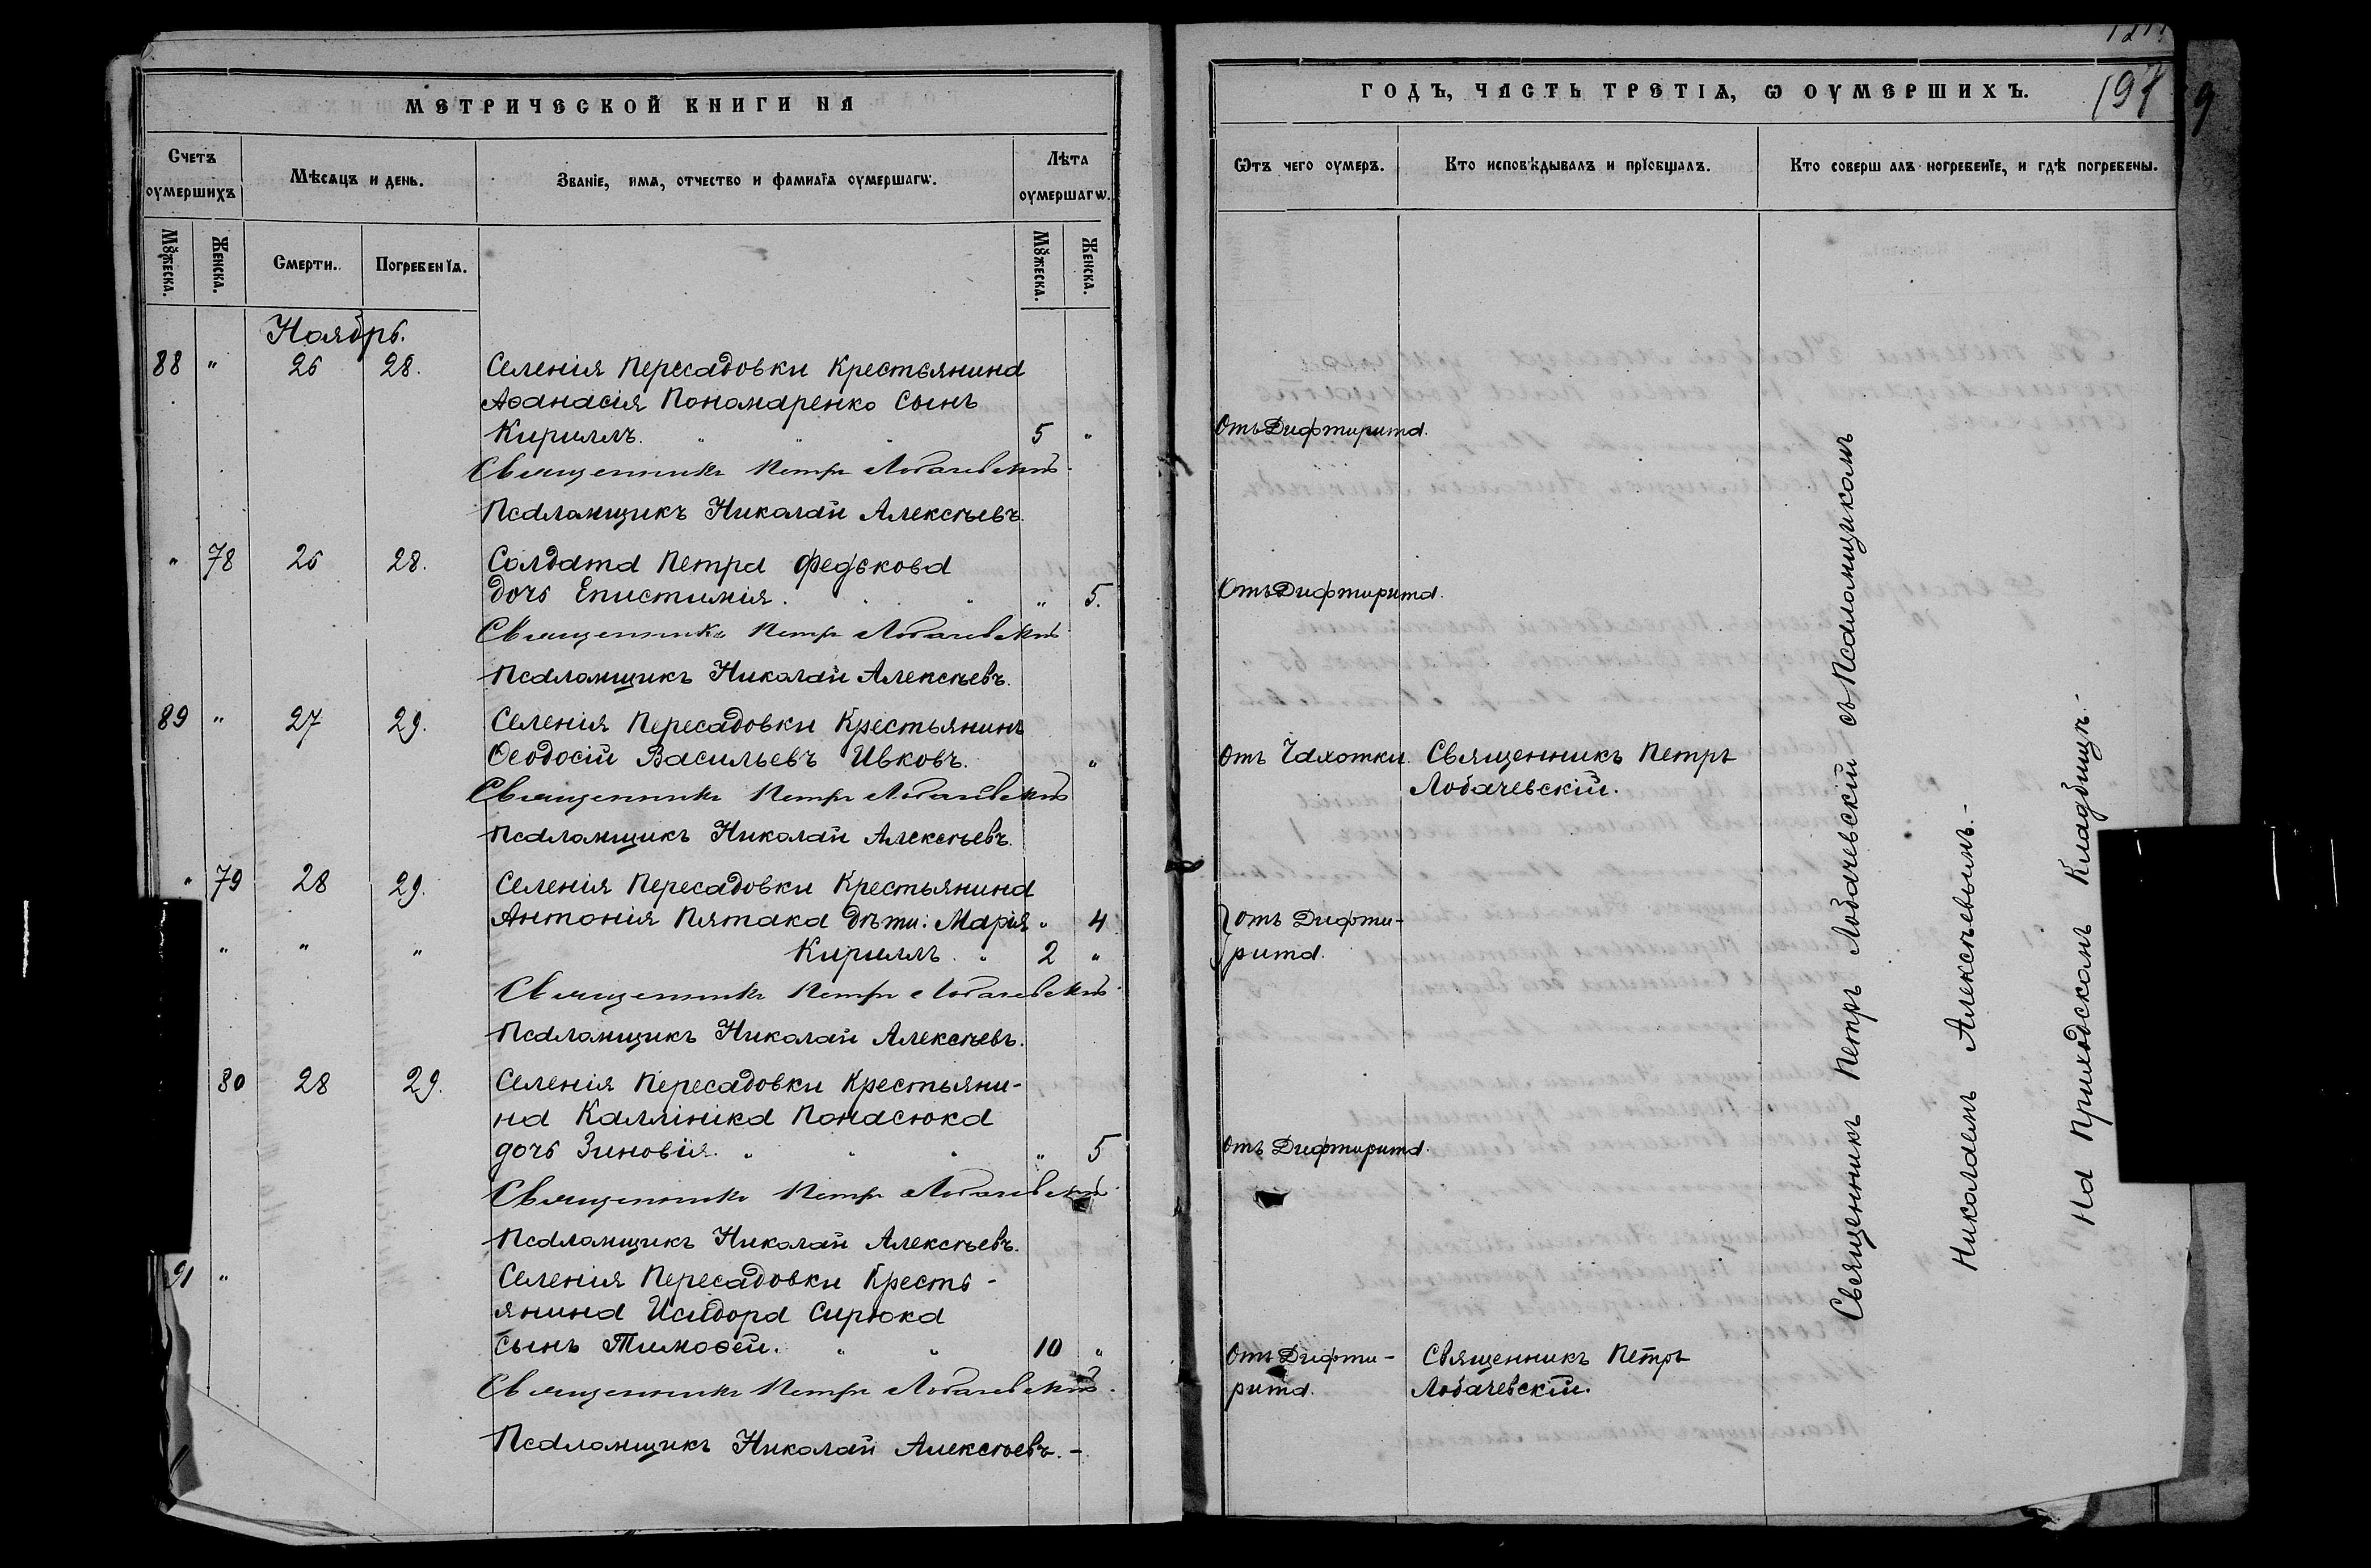 МЕТРИЧЕСКОЙ КНИГИ НА
Счетъ оумершихъ
Мѣсяцъ и день.
Званіе, имя, отчество и фамилія оумершагѡ.
Лѣта оумершагѡ.
Мꙋжеска. Женска. Смерти. Погребенїя. Мꙋжеска. Женска.
Ноябрь.
88 " 26 28. Селенія Пересадовки Крестьянина
Аѳанасія Пономаренко сынъ
Кириллъ. " " " 5 "
Священникъ Петръ Лобачевскій
Псаломщикъ Николай Алексѣевъ.
" 78 26 28. Солдата Петра Федькова
дочь Епистимія. " 5.
Священникъ Петръ Лобачевскій
Псаломщикъ Николай Алексѣевъ.
89 " 27 29. Селенія Пересадовки Крестьянинъ
Ѳеодосій Васильевъ Ивковъ. "
Священникъ Петръ Лобачевскій
Псаломщикъ Николай Алексѣевъ.
" 79 28 29. Селенія Пересадовки Крестьянина
Антонія Пятака дѣти: Марія " 4
" " " Кириллъ. " 2 "
Священникъ Петръ Лобачевскій
Псаломщикъ Николай Алексѣевъ.
80 28 29. Селенія Пересадовки Крестьяни-
на Каллиніка Понасюка
дочь Зиновія. " " " " 5
Священникъ Петръ Лобачевскій
Псаломщикъ Николай Алексѣевъ.
91 " Селенія Пересадовки Кресть-
янина Исидора Сирюка
сынъ Тимоѳей. " " 10 "
Священникъ Петръ Лобачевскій.
Псаломщикъ Николай Алексѣевъ.-
ГОДЪ, ЧАСТЬ ТРЕТІѦ, Ѡ ОУМЕРШИХЪ.
197
9
Ѿтъ чего оумеръ.
Кто исповѣдывалъ и прїобщалъ.
Кто соверш алъ ногребенїе, и гдѣ погребены.
Отъ Дифтирита.
Отъ Дифтирита.
Отъ Чахотки. Священникъ Петръ
Лобачевскій.
отъ Дифти-
рита.
Отъ Дифтирита.
Отъ Дифти- Священникъ Петръ
рита. Лобачевскій.
Священникъ Петръ Лобачевскій съ Псаломщикомъ
Николаемъ Алексѣевымъ.-
На Приходскомъ Кладбищѣ.-